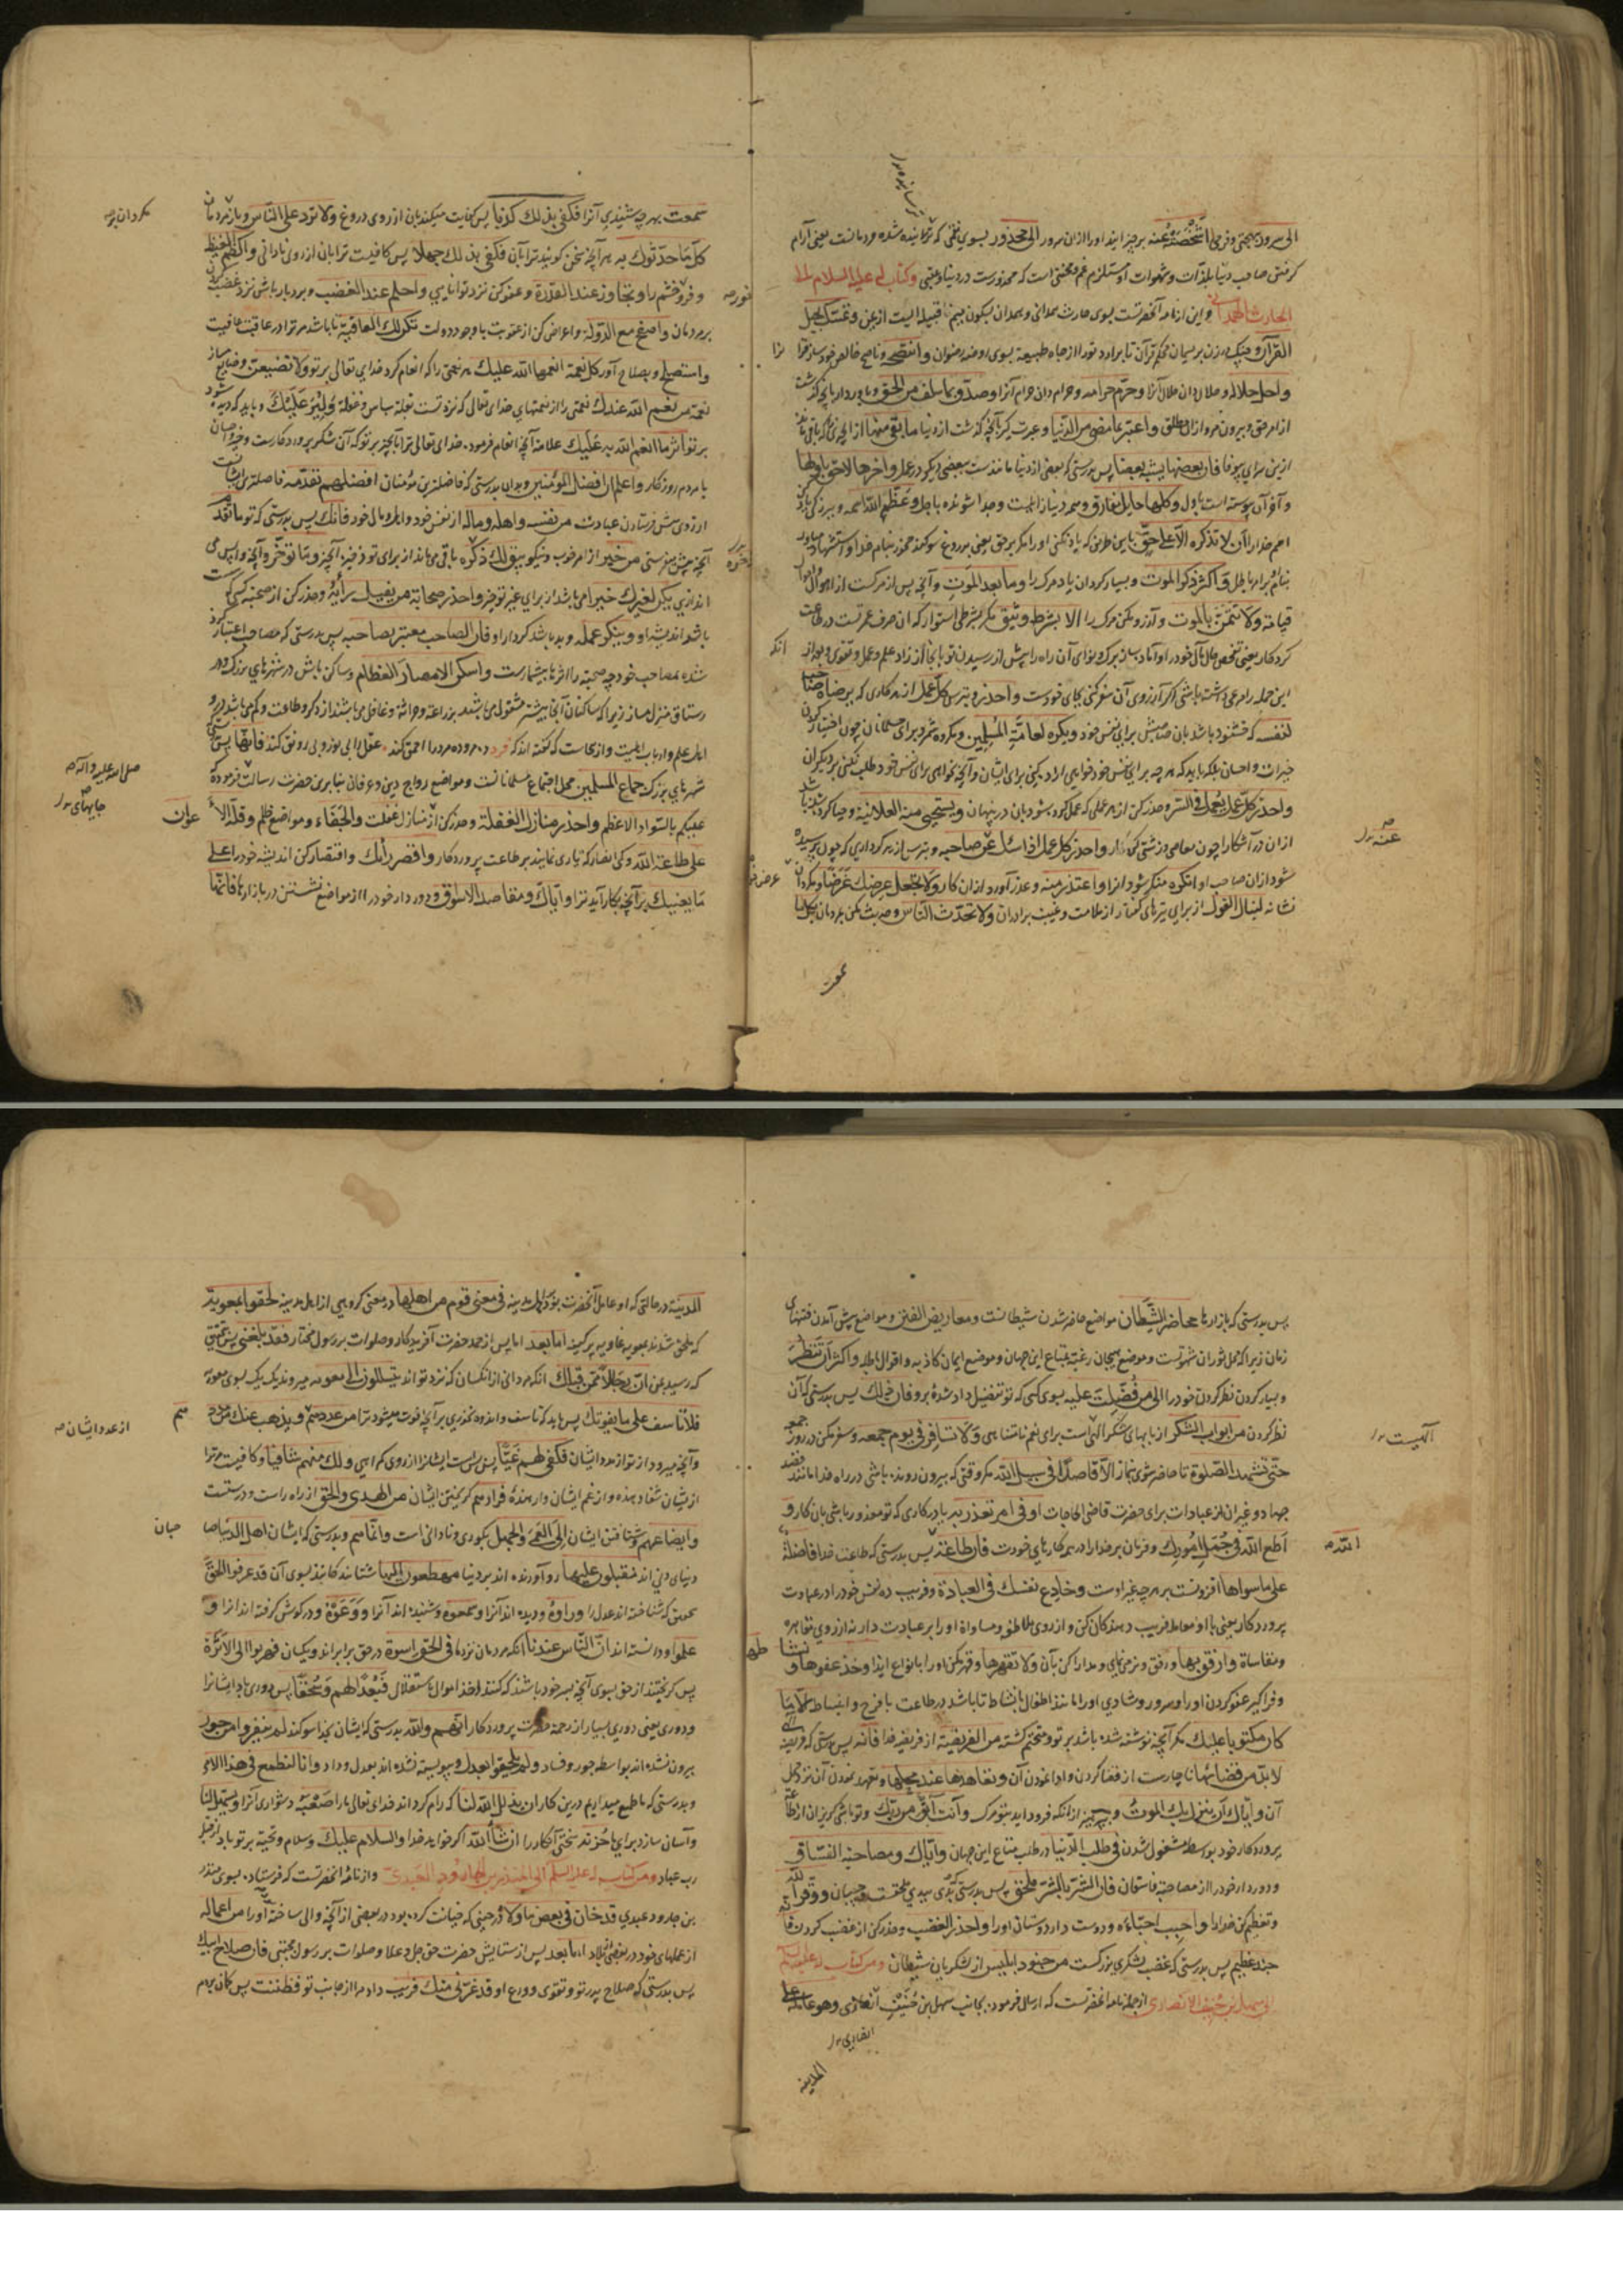 الی سرور بهجتی و فرحی اشخصته عنه برخیزاند او را از ان سرور الی محذور بسوی نقمی که ترسانیده شده و دمانست یعنی آرام
کرفتن صاحب دنیا بلذات و شهوات او مستلزم غم و محنتی است که محذورست در دنیا و عقبی و کتاب له علیه السلام الی
الحارث الهمدانی و این از نامه آنحضرتست بسوی حارث همدانی و همدان بسکون میم قبیله ایست از یمن و تمسک بحبل
القرآن و چنک در زن بریسمان محکم قرآن تا برارد تو را از چاه طبیعة بسوی روضه رضوان و انتصحه و ناصح خالص خود ساز قرآ
و احل حلاله و حلال دان حلال آنرا و حرم حرامه و حرام دان حرام آنرا و صدق بما سلف من الحق و باور دار بانچه کذشت
از امر حق و بیرون مرو از ان مطلق و اعتبر بما مضی من الدنیا و عبرت کیر بآنچه کذشت از دنیا ما بقی منها از انچه که باقی مانده
ازین سرای بیوفا فان بعضها یشبه بعضا پس بدرستی که بعضی از دنیا مانندست ببعضی دیکر در عمل و اخرها لاحق باولها
و آخر آن پیوسته است باول و کلها حایل مفارق و همه دنیا زایلیست و جدا شونده باجل و عظم اسم الله و بزرک دان
اسم خدا را ان لا تذکره الا علی حق باین طریق که یاد نکنی او را مکر بر حق یعنی بدروغ سوکند مخور بنام خدا و استشهاد میاور
بنام او برامر باطل و اکثر ذکر الموت و بسیار کردان یاد مرک را و ما بعد الموت و آنچه پس از مرکست از اهوال
قیامة و لا تتمن الموت و آرزو مکن مرک را الا بشرط وثیق مکر بشرطی استوار که آن صرف عمرتست در طاعت
کردکار یعنی شخص مآل خود را آباد ساز
این جمله را مرعی داشته باشی اکر آرزوی آن سفر کنی بجای خودست و احذر و بترس کل عمل از هر کاری که یرضاه صاحبه
لنفسه که خشنود باشد بان صاحبش برای نفس خود و یکره لعامة المسلمین و مکروه شمرد برای مسلمانان چون اختیار کردن
خیرات و احسان بلکه باید که هر چه برای نفس خود خواهی اراده کنی برای ایشان و آنچه نخواهی برای نفس خود طلب نکنی بر دیکران
و احذر کل عمل یعمل فی السر و حذر کن از هر عملی که عمل کرده شود بان در پنهان و یستحیی منه العلانیة و حیا کرده شده باشد
ازان در آشکارا چون معاصی و زشتی کردار و احذر کل عمل اذا سئل عن صاحبه و بترس از هر کرداری که چون پرسیده
شود ازان صاحب او انکره منکر شود انرا و اعتذر منه و عذر آورد ازان کار و لا تجعل عرضک غرضا و مکردان
نشانه لنبال القول از برای تیرهای کفتار از ملامت و غیبت برادران و لا تحدث الناس و حدیث مکن بمردمان بکل ما
عنه
سمعت
سمعت بهر چه شنیدی آنرا فکفی بذلک کذبا پس کفایت میکند بان از روی دروغ و لا ترد علی الناس و باز مکردان
کل ما حدثوک به هر آنچه سخن کویند ترا بآن فکفی بذلک جهلا پس کافیست ترا بان از روی نادانی و اکظم الغیظ
و فرو خور خشم را و تجاوز عند القدرة و عفو کن نزد توانایی و احلم عند الغضب و بردبار باش نزد غضب کردن
بر مردمان و اصفح مع الدولة و اعراض کن از عقوبت با وجود دولت تکن لک العاقبة تا باشد مر ترا در عاقبت عافیت
و استصلح و بصلاح آور کل نعمة انعمها الله علیک هر نعمتی را که انعام کرد خدای تعالی بر تو و لا تضیعن و ضایع مساز
نعمة من نعم الله عندک نعمتی را از نعمتهای خدای تعالی که نزد تست و لیر علیک و باید که دیده شود
بر تو اثر ما انعم الله به علیک علامة آنچه انعام فرموده خدای تعالی ترا بآنچیز بر تو که آن شکر پروردکارست و احسان
با مردم روزکار و اعلم ان افضل المؤمنین و بدان بدرستی که فاضلترین مؤمنان افضلهم تقدمة فاضلترین ایشانست
از روی پیش فرستادن عبادت من نفسه و اهله و ماله از نفس خود و اهل و مال خود فانک پس بدرستی که تو ما تقدم
آنچه پیش میفرستی من خیر از امر خوب و نیکو یبق لک ذخره باقی می ماند از برای تو ذخیره آنچیز و ما تؤخر و آنچه واپس می
اندازی یکن لغیرک خیره می باشد از برای غیر تو خیر و احذر صحابة من یفیل رأیه و حذر کن از صحبت کسی که سست
باشد اندیشه او و ینکر عمله و بد باشد کردار او فان الصاحب معتبر بصاحبه پس بدرستی که مصاحب اعتبار کرده
شده بمصاحب خود چه صحبة را اثرها بیشمارست و اسکن الامصار العظام و ساکن باش در شهرهای بزرک در
رستاق منزل مساز زیرا که ساکنان آنجا بیشتر مشغول می باشند بزراعة و حراثة و غافل می باشند از ذکر و طاعت و کم می باشد درو
اهل علم و ارباب اهلیت و ازینجاست که کفته اند که فرد ده مرو ده مرد را احمق کند عقل را بی نور و بی رونق کند فانها پس
شهرهای بزرک جماع المسلمین محل اجتماع مسلمانانست و مواضع رواج دین و عرفان بنابرین حضرت رسالت فرموده که
علیکم بالسواد الاعظم و احذر منازل الغفلة و حذر کن از منازل غفلت و الجفاء و مواضع ظلم و قلة الاعوان
علی طاعة الله و کمی انصار که یاری نمایند بر طاعت پروردکار و اقصر رایک و اقتصار کن اندیشه خود را علی
ما یعنیک بر آنچه بکار آید ترا و ایاک و مقاعد الاسواق و دور دار خود را از مواضع نشستن در بازارها فانها
صلی الله علیه و آله
جایهای
پس بدرستی که بازارها محاضر الشیطان مواضع حاضر شدن شیطانست و معاریض الفتن و مواضع پیش آمدن فتنهای
زمان زیرا که محل ثوران شهوتست و موضع هیجان رغبة بمتاع این جهان و موضع ایمان کاذبه و اقوال باطله و اکثر ان تنظر
و بسیار کردان نظر کردن خود را الی من فضلت علیه بسوی کسی که تو تفضیل داده شده برو فان ذلک پس بدرستی که آن
نظر کردن من ابواب الشکر از بابهای شکر الهی است برای نعم نامتناهی و لا تسافر فی یوم جمعة و سفر مکن در روز جمعه
حتی تشهد الصلوة تا حاضر شوی بنماز الا فاصلا فی سبیل الله مکر وقتی که بیرون رونده باشی در راه خدا مانند
جهاد و غیر آن از عبادات برای حضرت قاضی الحاجات او فی امر تعذر به یا در کاری که تو معذور باشی بان کار و
اطع الله فی جمل امورک و فرمان بر خدا را در همه کارهای خودت فان طاعة الله پس بدرستی که طاعت خدا فاضلة
علی ما سواها افزونست بر هر چه غیر اوست و خادع نفسک فی العبادة و فریب ده نفس خود را در عبادت
پروردکار یعنی با او معامله فریب دهندکان کن و از روی ملاطفه و مساواة او را بر عبادت دار نه از روی مقاهره
و مقاساة و ارفق بها و رفق و نرمی نمای و مدارا کن بآن و لا تقهرها و قهر مکن او را بانواع ایذا و خذ عفوها و نشاطها
و فرا کیر عفو کردن او را و سرور و شادی او را مانند اطفال بانشاط تا باشد در طاعت با فرح و انبساط الا ما
کان مکتوبا علیک مکر آنچه نوشته شده باشد بر تو و متحتم کشته من الفریضة از فریضه خدا فانه پس بدرستی که فریضه
لا بد من قضائها ناچارست از قضا کردن و ادا نمودن آن و تعاهدها عند محلها و تعهد نمودن آن نزد محل
آن و ایاک ان ینزل بک الموت و بپرهیز از انکه فرود آید بتو مرک و انت آبق من ربک و تو باشی کریزان از طاعة
پروردکار خود بواسطه مشغول شدن فی طلب الدنیا در طلب متاع این جهان و ایاک و مصاحبة الفساق
و دور دار خود را از مصاحبة فاسقان فان الشر بالشر ملحق پس بدرستی که بدی ببدی ملحقست و وقر الله
و تعظیم کن خدا را و احبب احباءه و دوست دار دوستان او را و احذر الغضب و حذر کن از غضب کردن فانه
جند عظیم پس بدرستی که غضب لشکری بزرکست من جنود ابلیس از لشکریان شیطان و من کتاب له علیه السلام
الی سهل بن حنیف الانصاری از جمله نامه آنحضرتست که ارسال فرموده بجانب سهل بن حنیف انصاری و هو عامله علی
المدینة
المدینة در حالتی که او عامل آنحضرت بود بر اهل مدینه فی معنی قوم من اهلها در معنی کروهی از اهل مدینه لحقوا بمعویة
که ملحق شدند بمعویه غاویه پر کینه اما بعد اما پس از حمد حضرت آفریدکار و صلوات بر رسول مختار فقد بلغنی پس بتحقیق
که رسید بمن ان رجالا ممن قبلک انکه مردانی از انکسان که نزد تو اند یتسللون الی معویة میروند یک یک بسوی معویه
فلا تأسف علی ما یفوتک پس باید که تاسف و اندوه نخوری بر آنچه فوت میشود ترا من عددهم و یذهب عنک من مددهم
و آنچه میرود از تو از مدد ایشان فکفی لهم غیا پس بس است ایشانرا از روی کمراهی و لک منهم شافیا و کافیست مر ترا
از یشان شفا دهنده و از غم ایشان وارهنده فرارهم کریختن ایشان من الهدی و الحق از راه راست و درست
و ایضاعهم و شتافتن ایشان الی العمی و الجهل بکوری و نادانی است و انما هم و بدرستی که ایشان اهل الدنیا صاحبان
دنیای دنی اند مقبلون علیها رو آورنده اند بر دنیا مهطعون الیها شتابند کانند بسوی آن قد عرفوا الحق
بتحقیق که شناخته اند عدل را و راوه و دیده اند آنرا و سمعوه و شنیده اند آنرا و وعوه و در کوش کرفته اند انرا و
علموا و دانسته اند ان الناس عندنا انکه مردمان نزد ما فی الحق اسوة در حق برابراند و یکسان فهربوا الی الاثرة
پس کریختند از حق بسوی آنچه بسر خود باشند که کنند اخذ اموال باستقلال فبعدا لهم و سحقا پس دوری باد ایشانرا
و دوری یعنی دوری بسیار از رحمة حضرت پروردکار انهم و الله بدرستی که ایشان بخدا سوکند لم ینفروا من جور
بیرون نشده اند بواسطه جور و فساد و لم یلحقوا بعدل و پیوسته نشده اند بعدل و داد و انا لنطمع فی هذا الامر
و بدرستی که ما طمع میداریم درین کار ان یذلل الله لنا که رام کرداند خدای تعالی ما را صعبه دشواری آنرا و یسهل لنا
و آسان سازد برای ما حزنه سختی آنکار را ان شاء الله اکر خواهد خدا و السلام علیک و سلام و تحیة بر تو باد از قبل
رب عباد و من کتاب له علیه السلم الی المنذر بن الجارود العبدی و از نامه آنحضرتست که فرستاده بسوی منذر
بن جارود عبدی قد خان فی بعض ما ولاه در حینی که خیانت کرده بود در بعضی از آنچه والی ساخته او را من اعماله
از عملهای خود در بعضی بلاد اما بعد پس از ستایش حضرت حق جل و علا و صلوات بر رسول مجتبی فان صلاح ابیک
پس بدرستی که صلاح پدر تو و تقوی و ورع او قد غرنی منک فریب داد مرا از جانب تو فظننت پس کمان بردم
از عدد ایشان